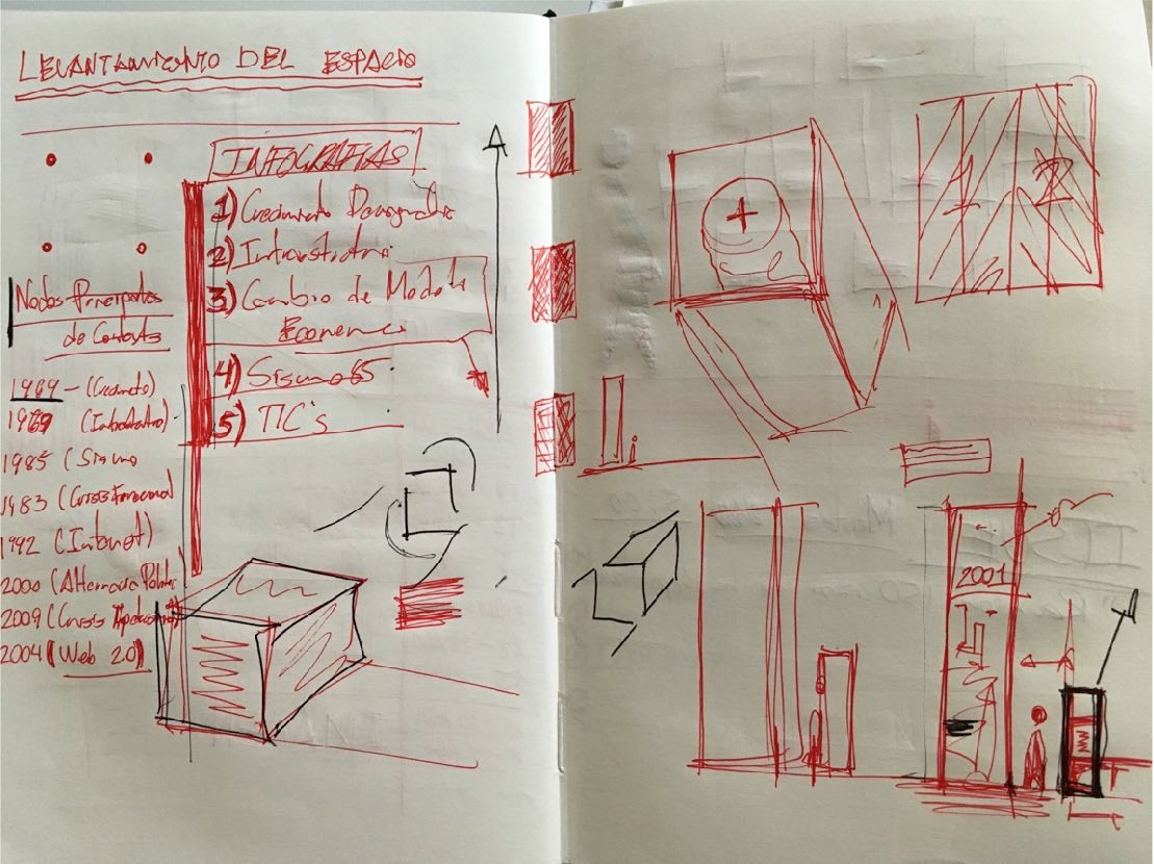 LEVANTAMIENTO DEL ESPACIO
INFOGRAFIAS
1) Crecimiento Demografico
2) Infraestructura
3) Cambio de Modelo
Economico
4) Sismo 85
5) TIC's
Nodos Principales
de Contexto
1969 - (Crecimiento)
1969
1985 (Sismo
1983 (Crisis Financiera)
1992 (Internet)
2000 (Alternancia
2009 (Crisis
2004 (Web 2.0)
1 2
2001